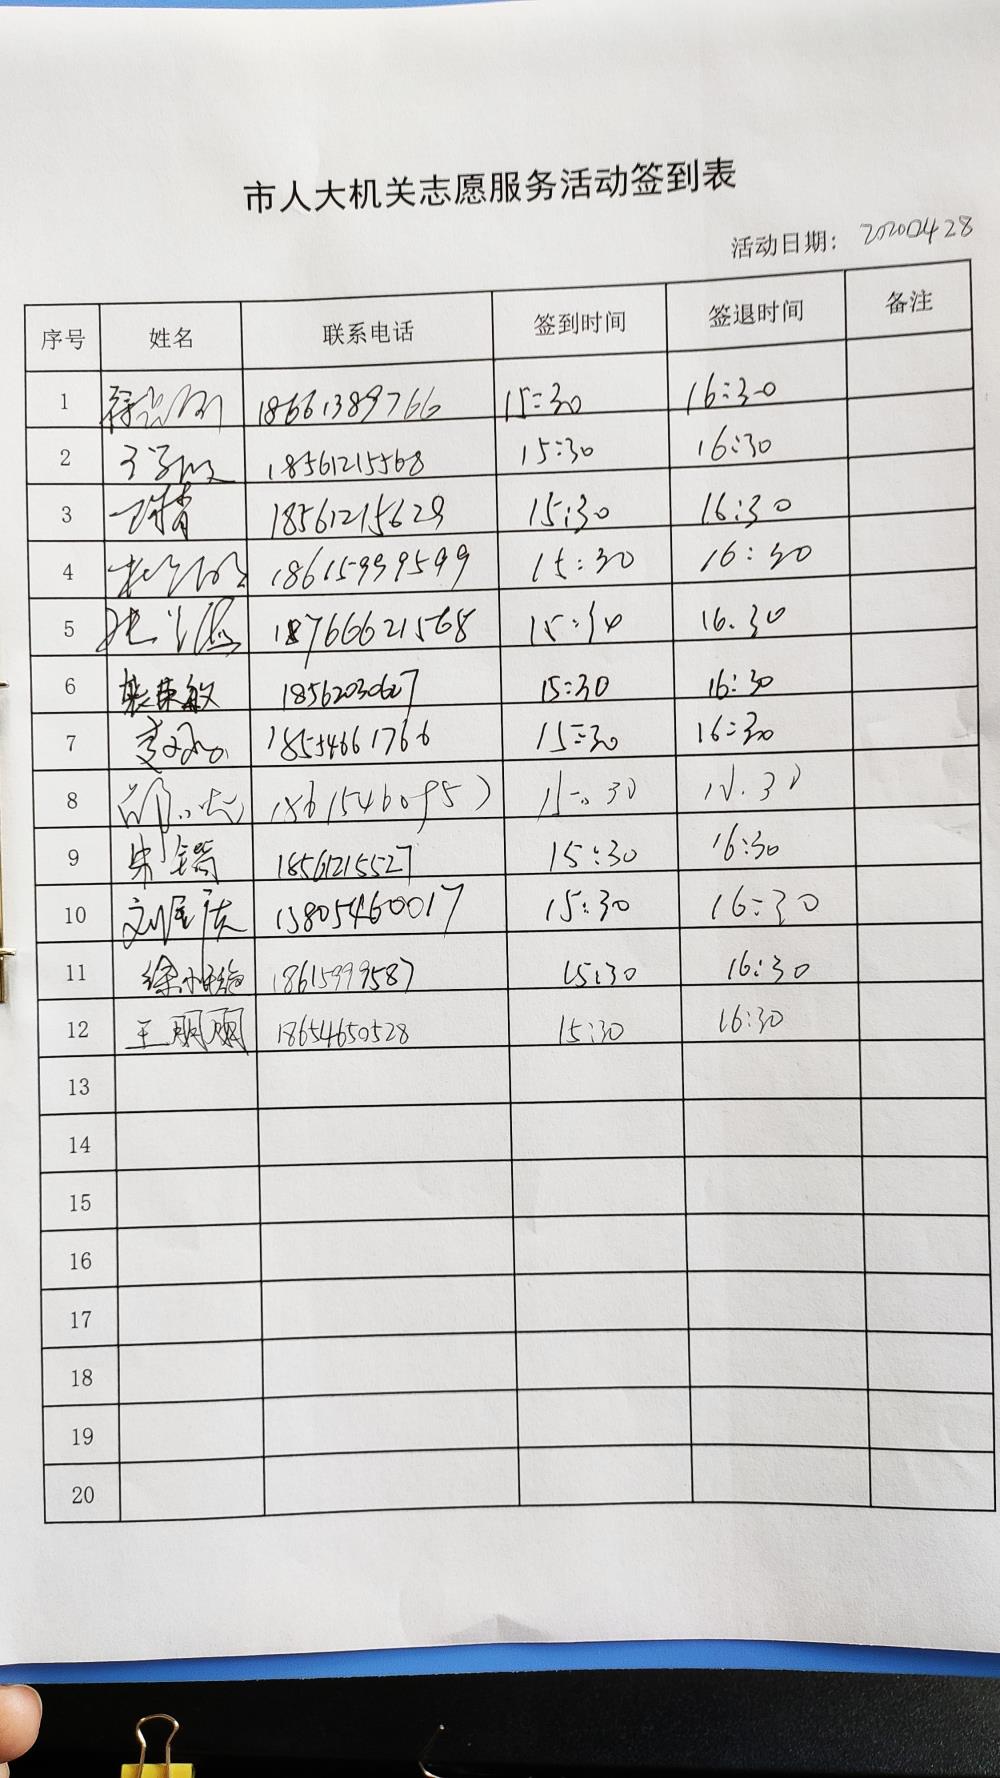 市人大机关志愿服务活动签到表
活动日期： 20200428
序号 姓名 联系电话 签到时间 签退时间 备注
1 18661389766 15:30 16:30
2 18561215568 15:30 16:30
3 18561215629 15:30 16:30
4 18615999599 15:30 16:30
5 18766621568 15:30 16.30
6 张荣敏 18562030627 15:30 16:30
7 18554661766 15:30 16:30
8
9 朱锴 18561215527 15:30 16:30
10 13805460017 15:30 16:30
11 18615999587 15:30 16:30
12 王丽丽 18654650528 15:30 16:30
13
14
15
16
17
18
19
20